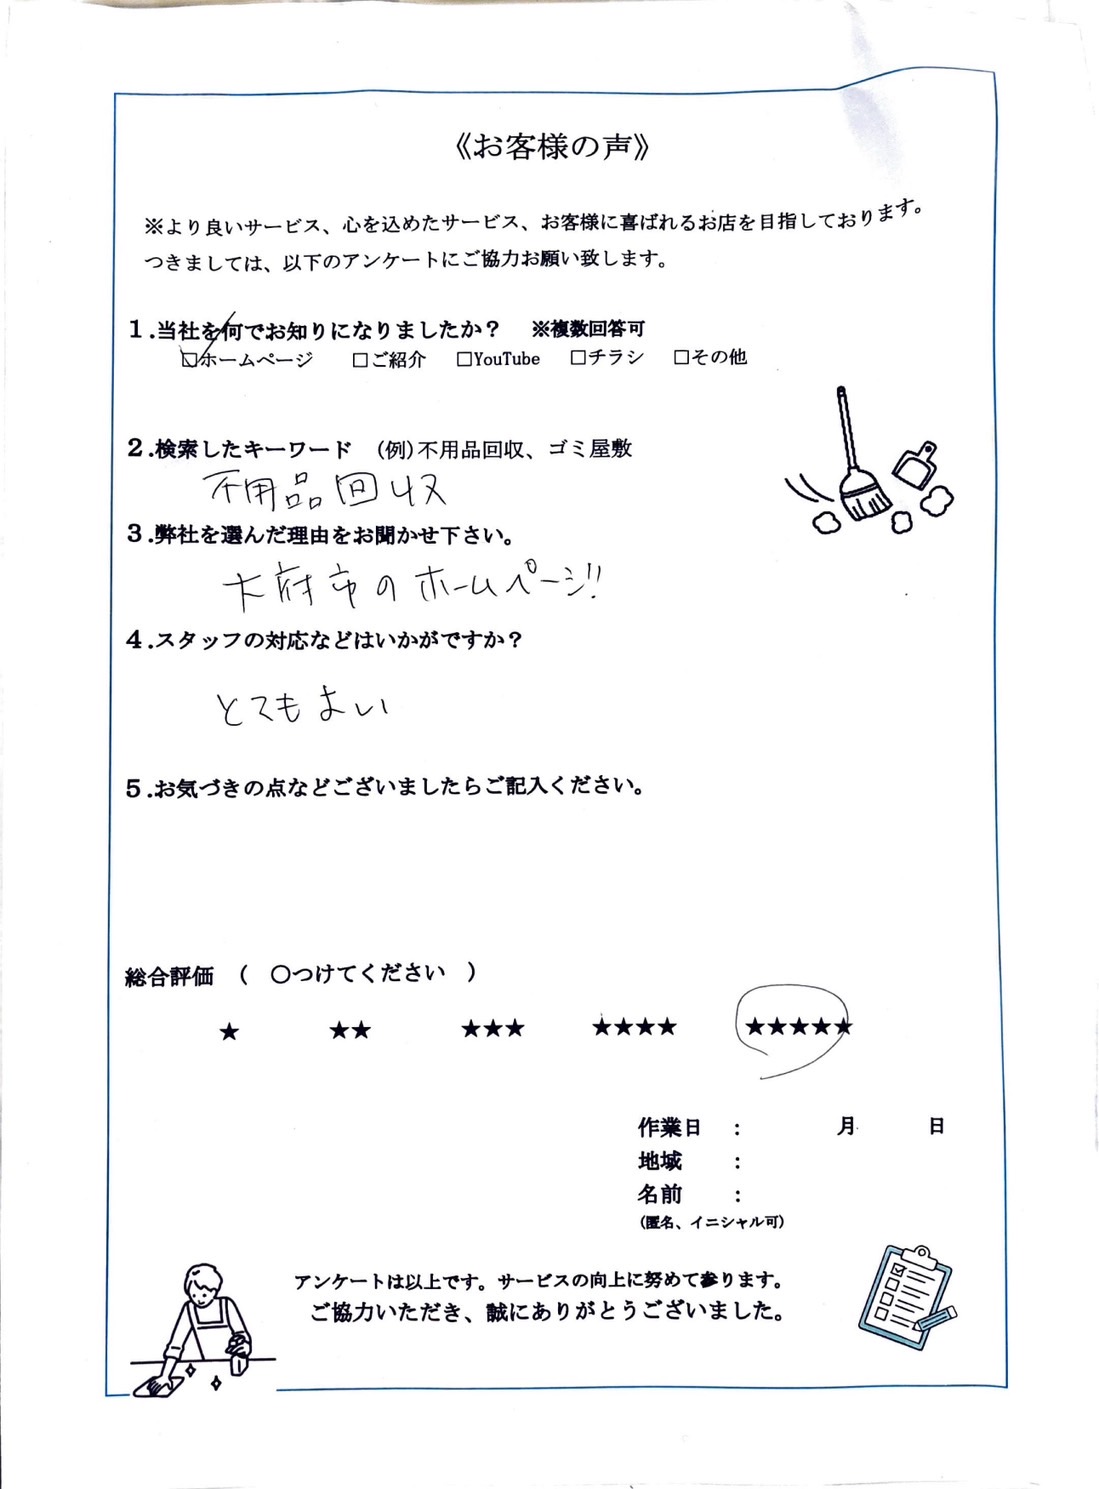 《お客様の声》
※より良いサービス、心を込めたサービス、お客様に喜ばれるお店を目指しております。
つきましては、以下のアンケートにご協力お願い致します。
1.当社を何でお知りになりましたか？ ※複数回答可
☑ホームページ □ご紹介 □YouTube □チラシ □その他
2.検索したキーワード (例)不用品回収、ゴミ屋敷
不用品回収
3.弊社を選んだ理由をお聞かせ下さい。
大府市のホームページ!!
4.スタッフの対応などはいかがですか？
とてもよい
5.お気づきの点などございましたらご記入ください。
総合評価 ( ○つけてください )
★ ★★ ★★★ ★★★★ ★★★★★
作業日 : 月 日
地域 :
名前 :
(匿名、イニシャル可)
アンケートは以上です。サービスの向上に努めて参ります。
ご協力いただき、誠にありがとうございました。